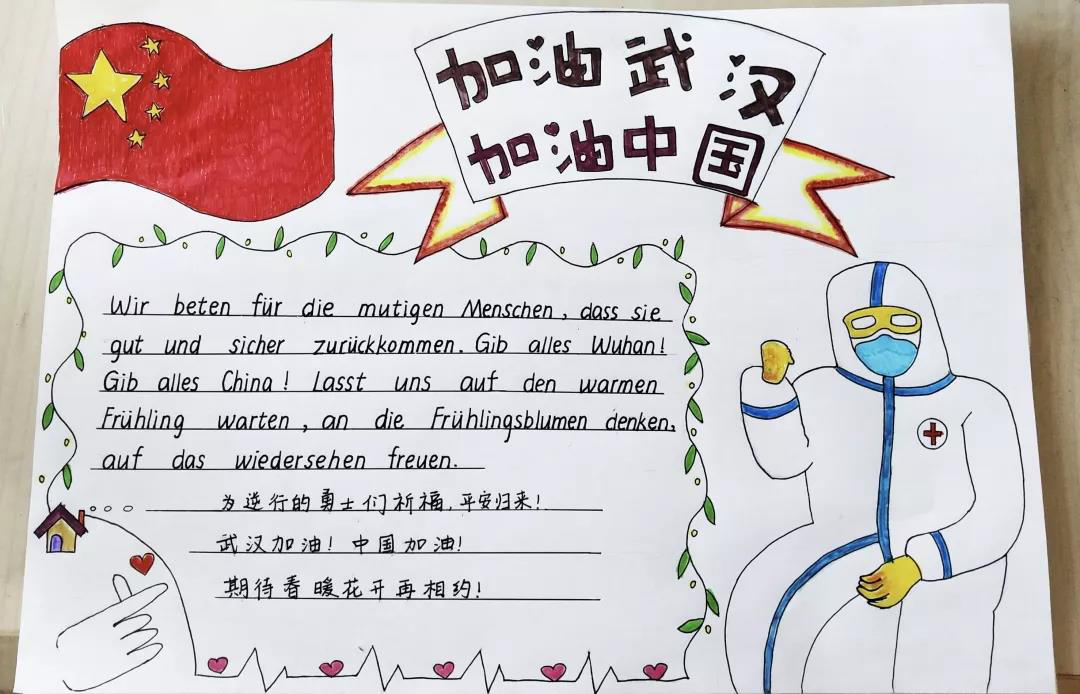 加油武汉
加油中国
Wir beten für die mutigen Menschen, dass sie
gut und sicher zurückkommen. Gib alles Wuhan!
Gib alles China! Lasst uns auf den warmen
Frühling warten, an die Frühlingsblumen denken,
auf das wiedersehen freuen.
为逆行的勇士们祈福,平安归来!
武汉加油!中国加油!
期待春暖花开再相约!